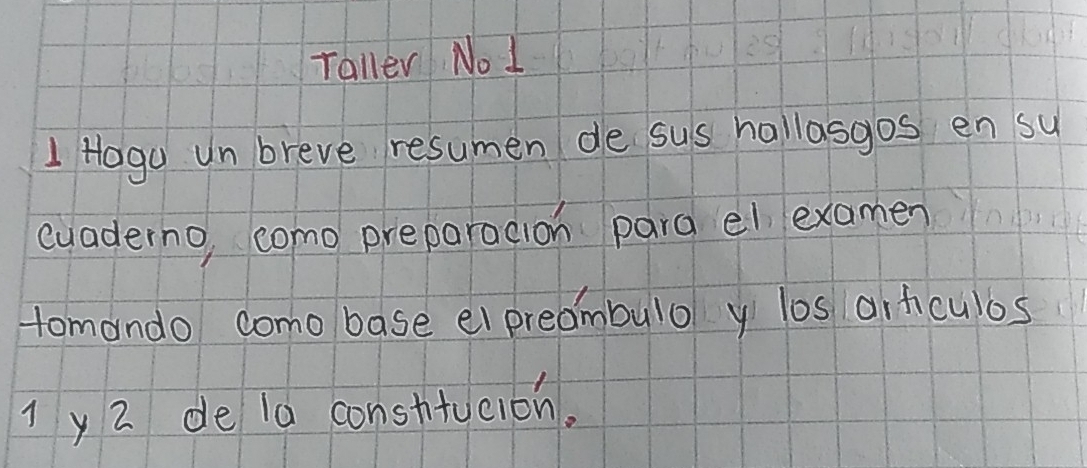 Taller No 1
1 Haga un breve resumen de sus hallasgos en su
cuaderno, como preparación para el examen
tomando como base el preámbulo y los artículos
1 y 2 de la constitución.